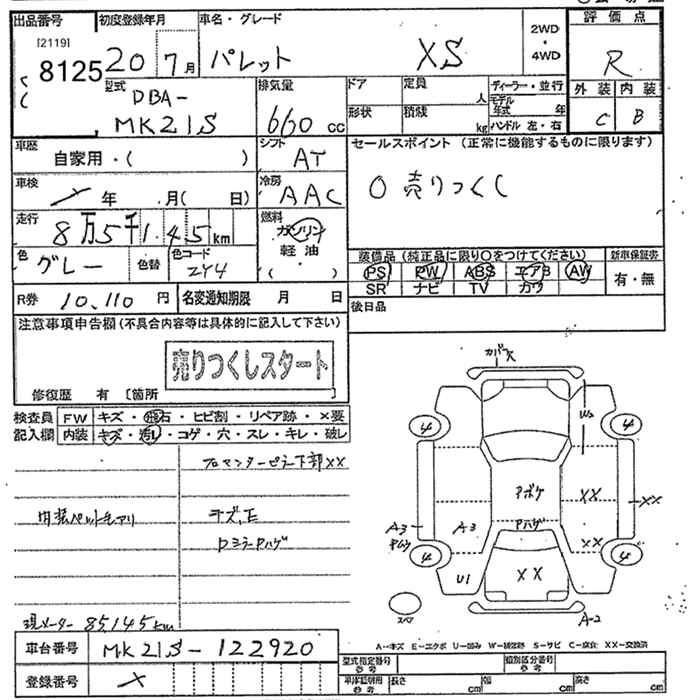 出品番号 初度登録年月 車名・グレード 2WD・4WD 評価点
[2119]
8125 20 7月 パレット XS R
型式 排気量 ドア 定員 人 ディーラー・並行 外装 内装
DBA- 形状 積載 kg モデル年式 年 C B
MK21S 660cc ハンドル 左・右
車歴 シフト セールスポイント (正常に機能するものに限ります)
自家用・( ) AT
車検 年 月( 日) 冷房 AAC 〇 売りつくし
走行 8万5千145km 燃料 ガソリン
軽油
( )
色 グレー 色替 色コード
装備品 (純正品に限り〇をつけてください) 新車保証書
PS PW ABS エアB AW 有・無
SR ナビ TV カワ
R券 10,110円 名変通知期限 月 日 後日品
注意事項申告欄(不具合内容等は具体的に記入して下さい)
売りつくしスタート
修復歴 有 〔箇所 〕
検査員 FW キズ・飛石・ヒビ割・リペア跡・×要
記入欄 内装 キズ・汚れ・コゲ・穴・スレ・キレ・破レ
カバー欠
W2
4 4
アボケ XX
XX
A3 A3 Pハゲ XX
4 4
U1 XX
スペア A-2
キズ、E
Dミラー Pハゲ
現メーター 85,145km
A-キズ E-エクボ U-凹み W-補修跡 S-サビ C-腐食 XX-交換済
車台番号 MK21S-122920
型式指定番号 参考 類別区分番号 参考
登録番号 車体証明用 参考 長さ cm 幅 cm 高さ cm